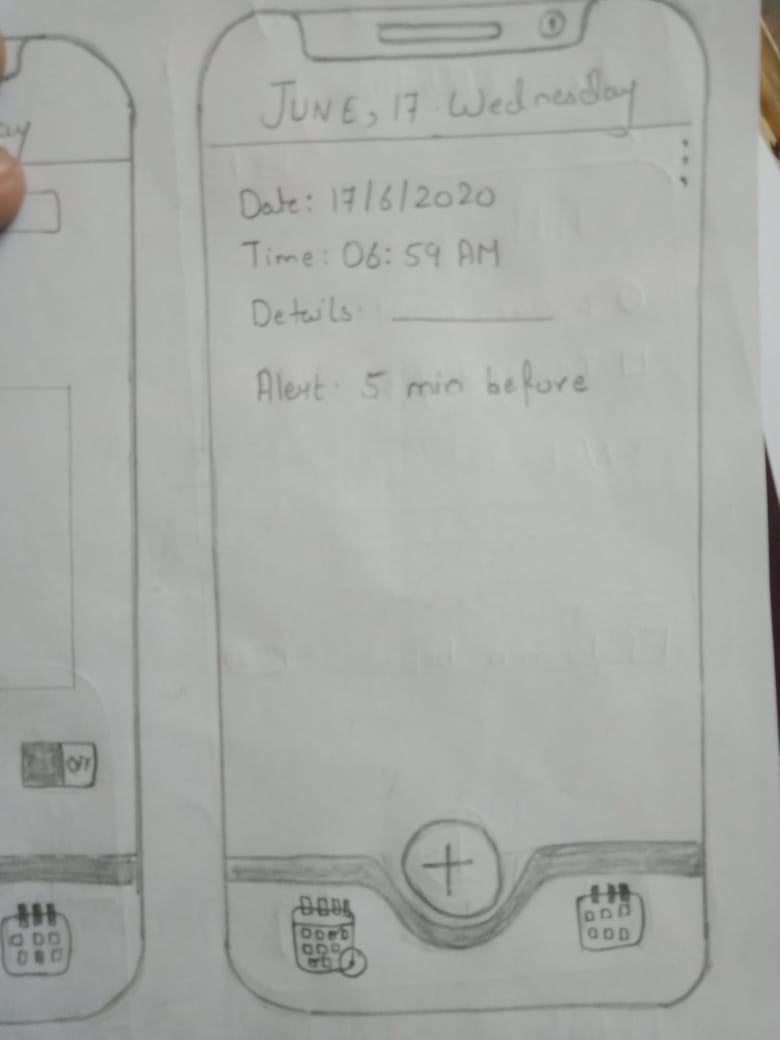 JUNE, 17 Wednesday
Date: 17/6/2020
Time: 06:59 AM
Details:
Alert: 5 min before
ay
OFF